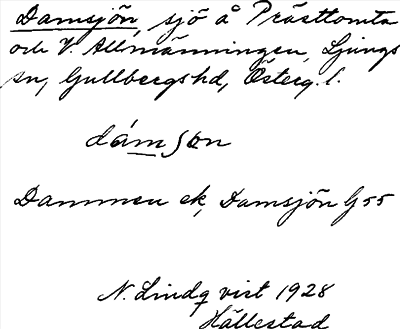 Damsjön, sjö å Prästtomta
och V. Allmänningen, Ljungs
sn, Gullbergs hd, Österg. l.
dámsøn
Dammen ek, Damsjön G 55
N. Lindqvist 1928
Hällestad